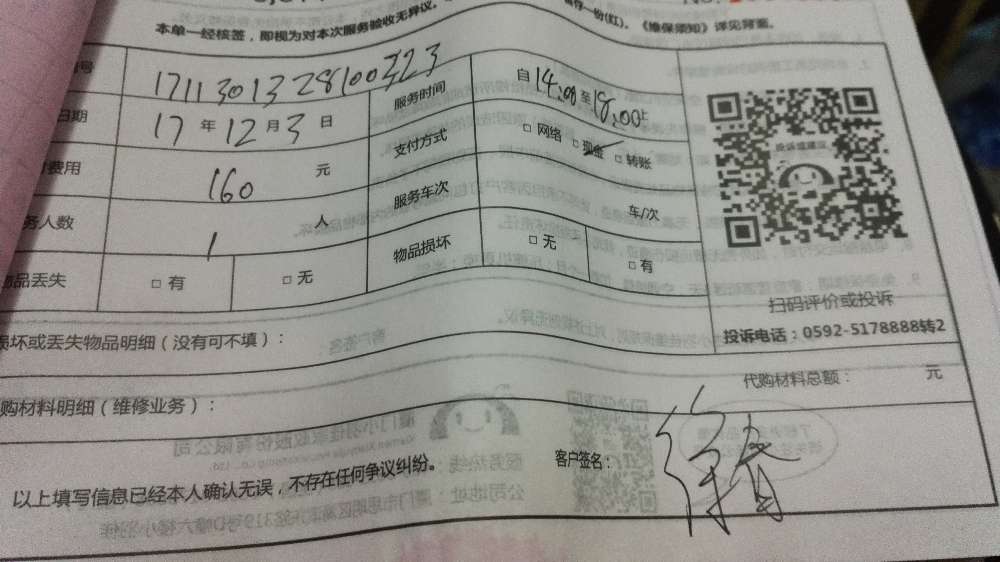 存一份(红)。《维保须知》详见背面。
本单一经核签，即视为对本次服务验收无异议。
号 1711301328100323 服务时间 自14:00至18:00止
日期 17年12月3日 支付方式 □ 网络 □ 现金 □ 转账
费用 160 元 服务车次 车/次
务人数 1 人 物品损坏 □ 无 □ 有
物品丢失 □ 有 □ 无
投诉或建议
扫码评价或投诉
投诉电话：0592-5178888转2
损坏或丢失物品明细（没有可不填）：
代购材料总额： 元
购材料明细（维修业务）：
以上填写信息已经本人确认无误，不存在任何争议纠纷。
客户签名：